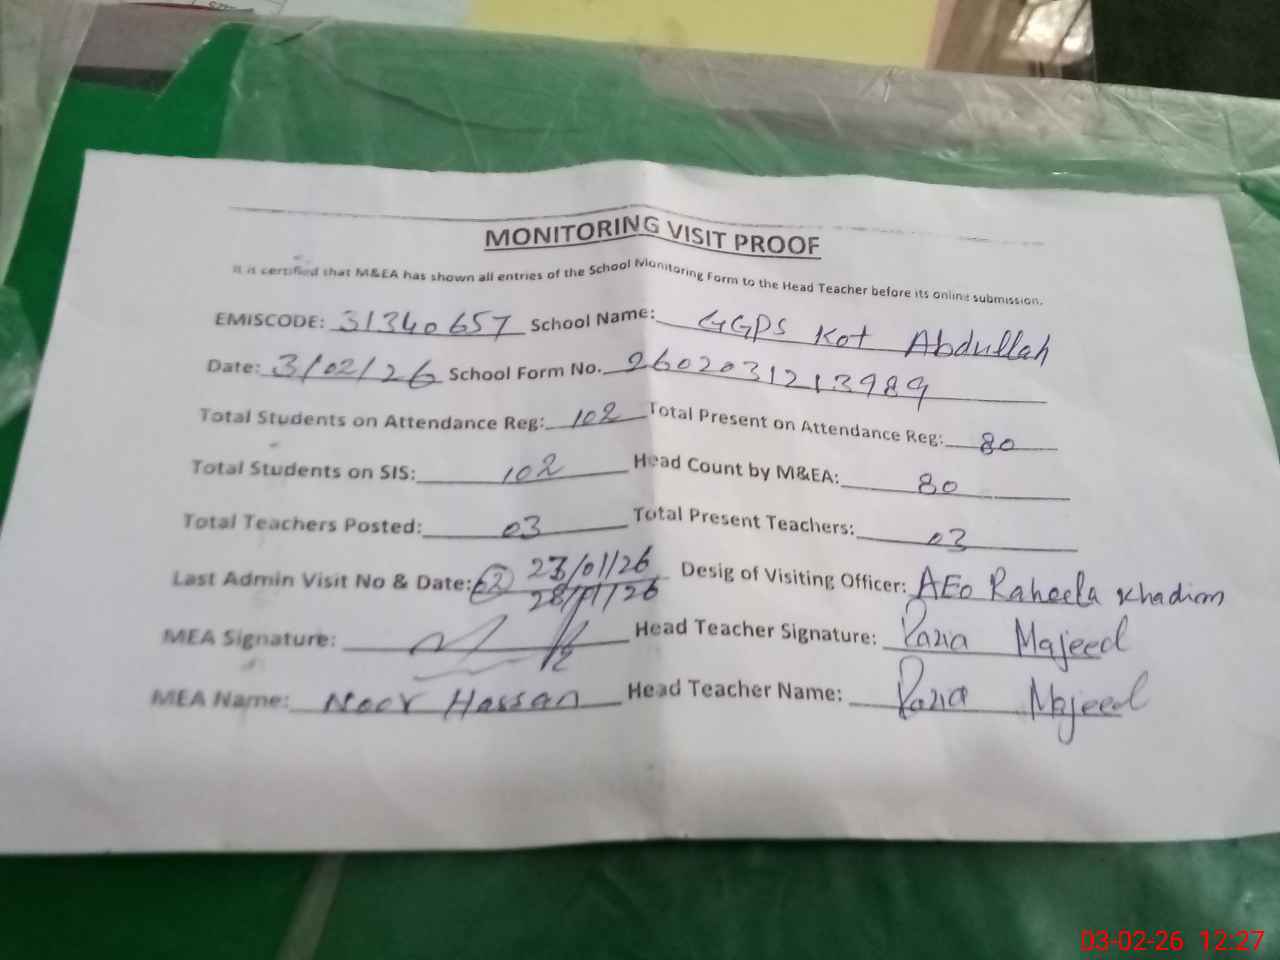 MONITORING VISIT PROOF
It is certified that M&EA has shown all entries of the School Monitoring Form to the Head Teacher before its online submission.
EMISCODE: 31340657 School Name: GGPS Kot Abdullah
Date: 3/02/26 School Form No. 2602031213989
Total Students on Attendance Reg: 102 Total Present on Attendance Reg: 80
Total Students on SIS: 102 Head Count by M&EA: 80
Total Teachers Posted: 03 Total Present Teachers: 03
Last Admin Visit No & Date: 02 23/01/26 28/01/26 Desig of Visiting Officer: AEO Raheela Khadim
MEA Signature: Head Teacher Signature: Razia Majeed
MEA Name: Noor Hassan Head Teacher Name: Razia Majeed
03-02-26 12:27